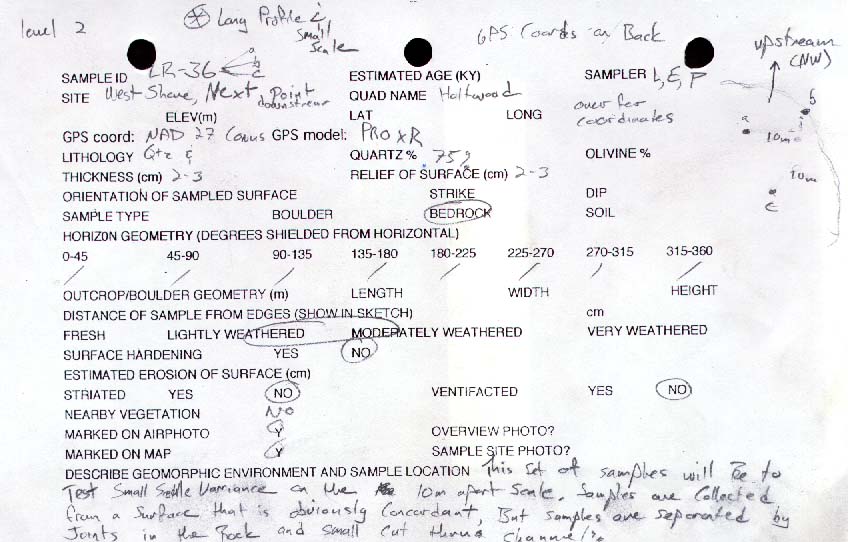 level 2
Long Profile &
Small
Scale
GPS Coords on Back
upstream
(NW)
SAMPLE ID LR-36 a b c
ESTIMATED AGE (KY)
SAMPLER L, E, P
SITE West Shore, Next Point downstream
QUAD NAME Holtwood
over for
coordinates
ELEV(m) LAT LONG
a b 10m
GPS coord: NAD 27 Conus GPS model: PRO XR
LITHOLOGY Qtz & QUARTZ% 75% OLIVINE %
THICKNESS (cm) 2-3 RELIEF OF SURFACE (cm) 2-3
10m
c
ORIENTATION OF SAMPLED SURFACE STRIKE DIP
SAMPLE TYPE BOULDER BEDROCK SOIL
HORIZON GEOMETRY (DEGREES SHIELDED FROM HORIZONTAL)
0-45 45-90 90-135 135-180 180-225 225-270 270-315 315-360
/ / / / / / / /
OUTCROP/BOULDER GEOMETRY (m) LENGTH WIDTH HEIGHT
DISTANCE OF SAMPLE FROM EDGES (SHOW IN SKETCH) cm
FRESH LIGHTLY WEATHERED MODERATELY WEATHERED VERY WEATHERED
SURFACE HARDENING YES NO
ESTIMATED EROSION OF SURFACE (cm)
STRIATED YES NO VENTIFACTED YES NO
NEARBY VEGETATION NO
MARKED ON AIRPHOTO Y OVERVIEW PHOTO?
MARKED ON MAP Y SAMPLE SITE PHOTO?
DESCRIBE GEOMORPHIC ENVIRONMENT AND SAMPLE LOCATION This set of samples will Be to
Test Small Scale Variance on the 10m apart scale. Samples are Collected
from a Surface that is obviously Concordant, But samples are separated by
Joints in the Rock and small Cut thru Channels.